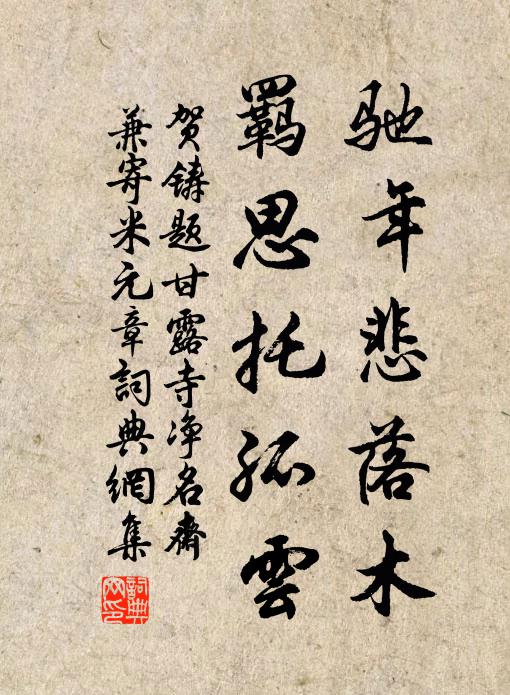 驰年悲落木
羁思托孤雲
贺铸题甘露寺净名斋
兼寄米元章詞典網集
詞典网印